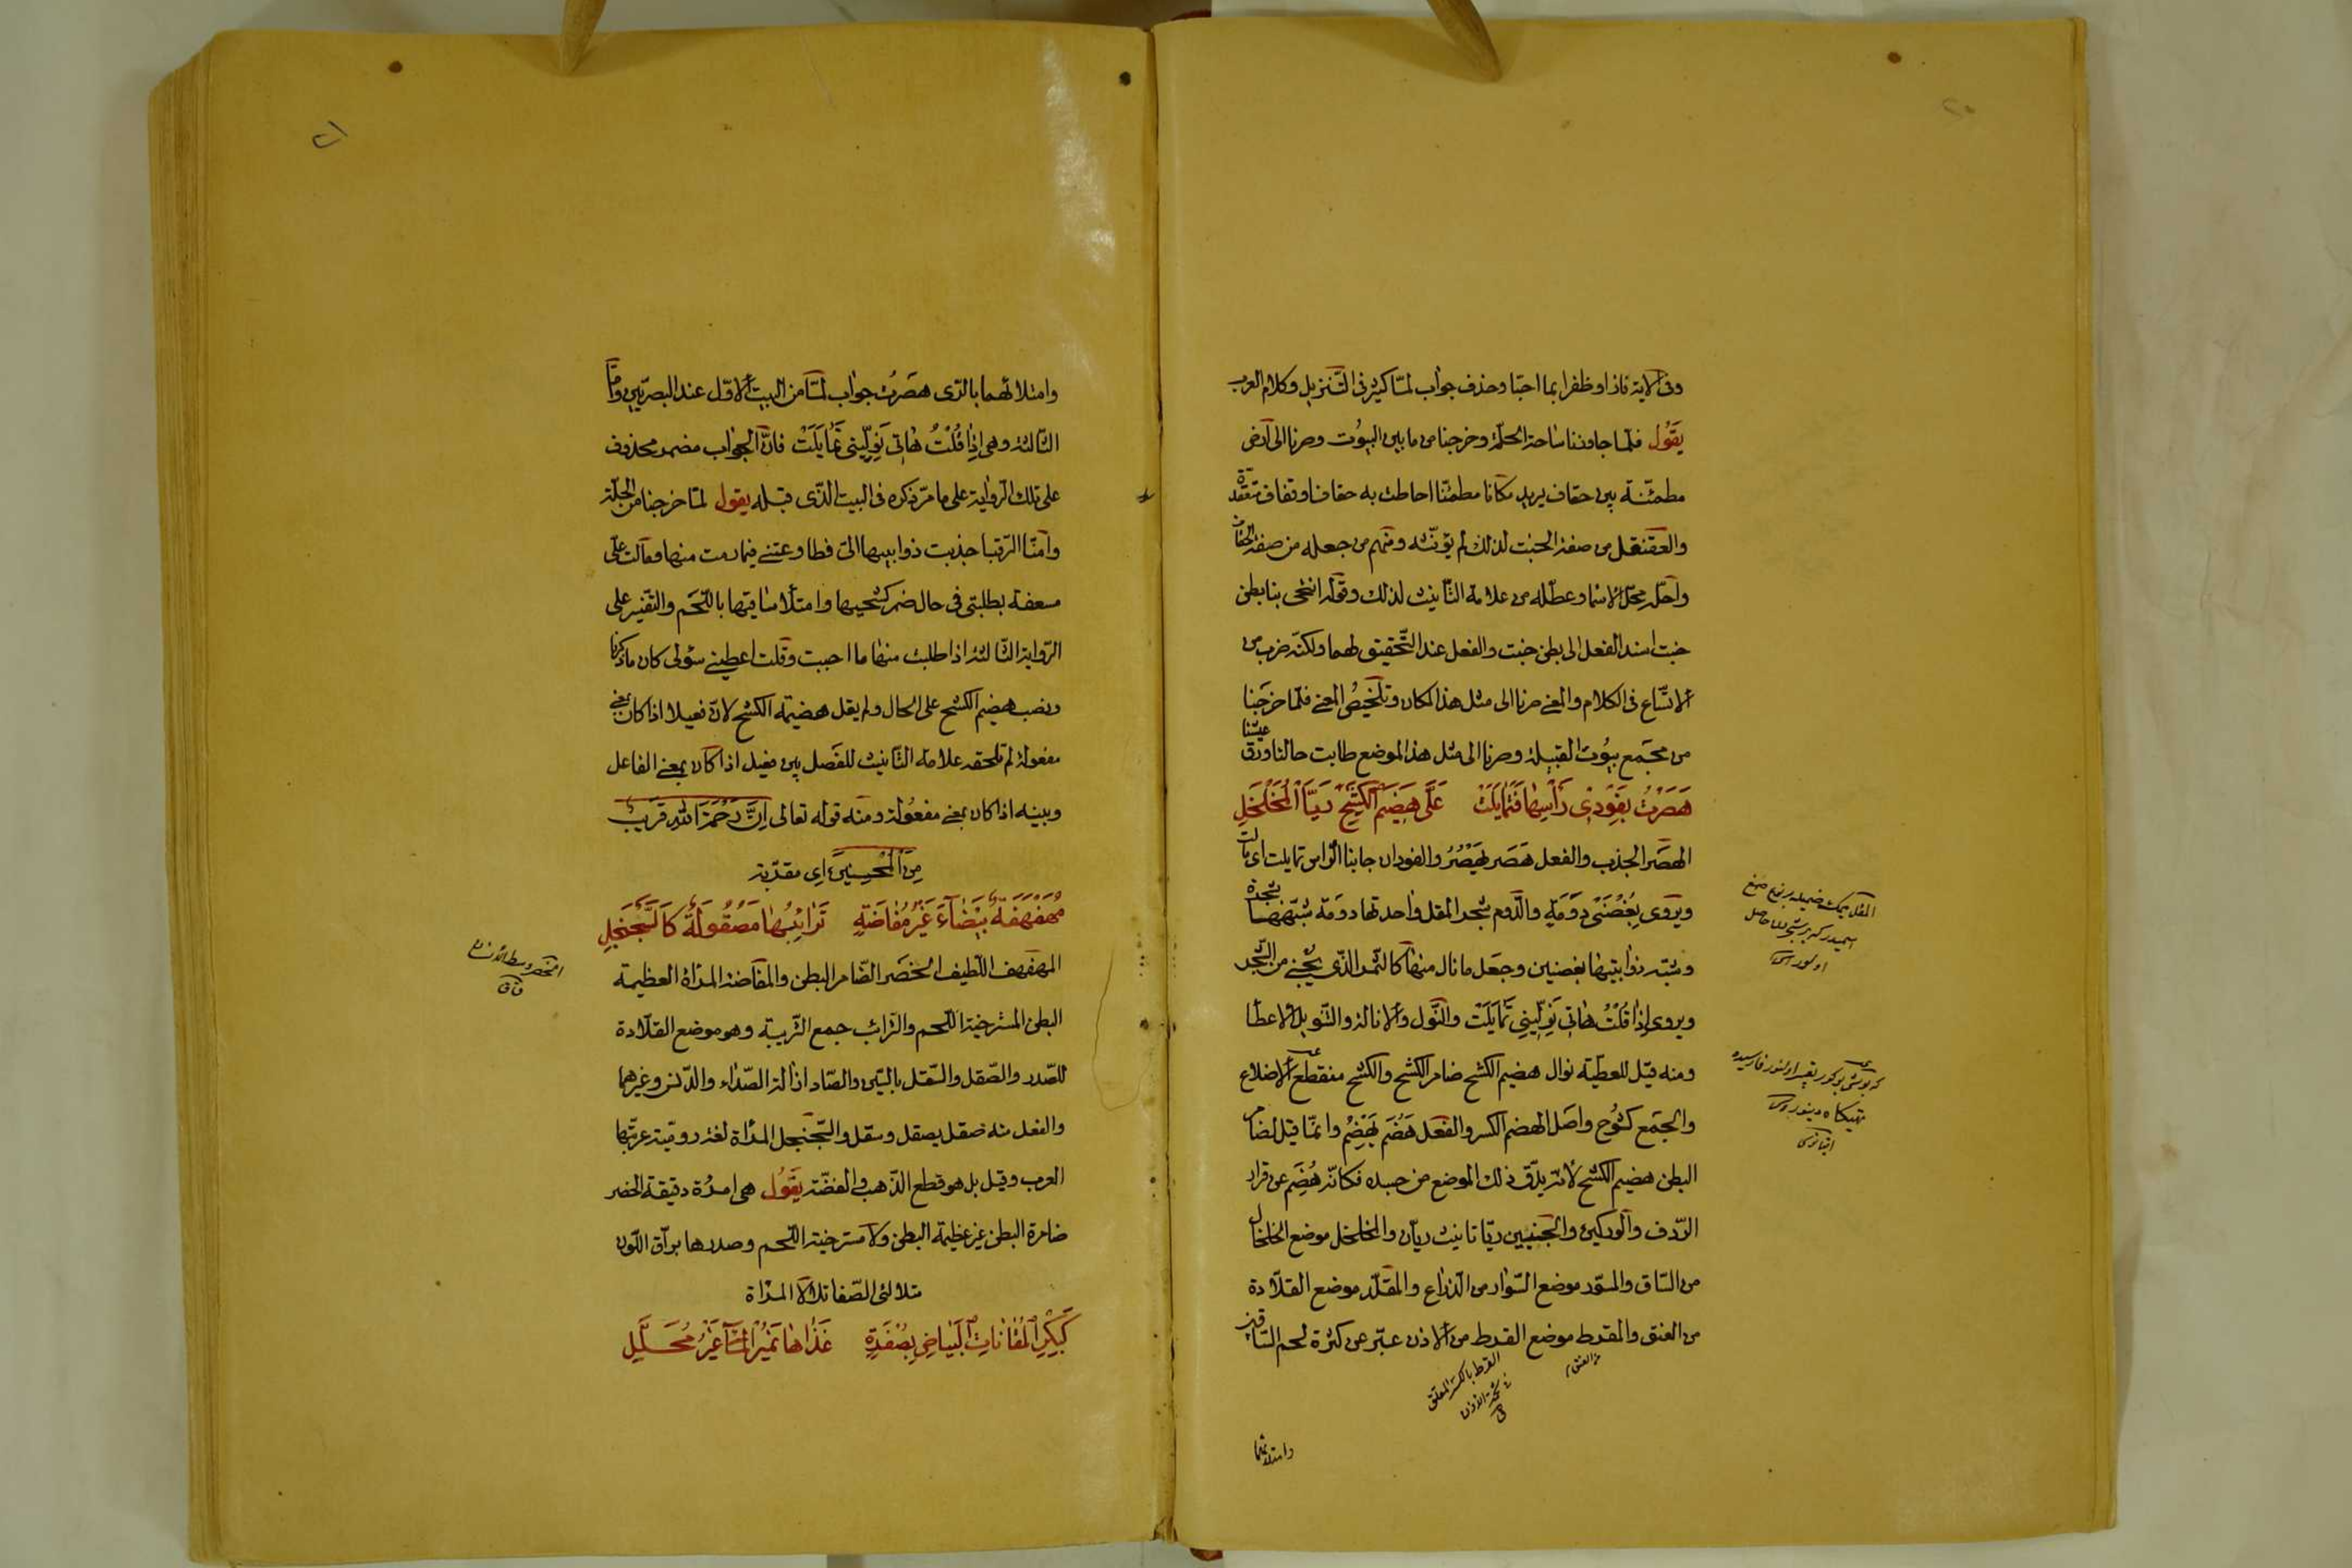 وفى الاية فازا وظفرا بما احبّا وحذف جواب لمّا كثير فى التّنزيل وكلام العرب
يَقُول فلمّا جاوزنا ساحة الحلّة وخرجنا من ما بين البيُوت وصرنا الى ارض
مطمئنّة بين حقاف يريد مكانا مطمئنّا احاطت به حقاف او قفاف متعقّدة
والعقنقل من صفة الخبت لذلك لم يؤنّثه ومنهم من جعله من صفة الحقاف
واحلّه محلّ الاسما وعطّله من علامة التّانيث لذلك وقوله انتحى بنا بطن
خبت اسند الفعل الى بطن خبت والفعل عند التّحقيق لهما ولكنّه ضرب من
الاتّساع فى الكلام والمعنى صرنا الى مثل هذا المكان وتلخيصُ المعنى فلمّا خرجنا
من مجمع بيُوت القبيلة وصرنا الى مثل هذا الموضع طابت حالنا ورق عيشنا
هَصَرْتُ بِفَوْدَىْ رَأْسِهَا فَتَمَايَلَتْ عَلَىَّ هَضِيمَ الْكَشْحِ رَيَّا الْمُخَلْخَلِ
الهصر الجذب والفعل هَصَر يَهْصُرُ والفودان جانبا الرّاس تمايلت اى مالت
ويروى بِغُصْنَىْ دَوْمَةٍ والدّوم شجر المقل واحدتها دومة شبّهها بشجرة
وشبّه ذوابتيها بغصنين وجعل ما نال منها كالثّمر الذّى يُجْنى من الشّجر
ويروى اِذَا قُلْتُ هَاتِى نَوِّلِينِى تَمَايَلَتْ والنّول والانالة والتّنويل الاعطا
ومنه قيل للعطيّة نوال هضيم الكشح ضامر الكشح والكشح منقطع الاضلاع
والجمع كشُوح واصل الهضم الكسر والفعل هَضَم يَهْضِمُ وانّما قيل لضامر
البطن هضيم الكشح لانّه يدّق ذلك الموضع من جسده فكانّه هُضِم عن قرار
الرّدف والوركين والجنبين ريّا تانيث ريّان والمخلخل موضع الخلخال
من السّاق والمسوّر موضع السّوار من الذّراع والمقلّد موضع القلّادة
من العنق والمقرط موضع القرط من الاذن عبّر عن كثرة لحم السّاقين
القرط بالكسر المعلّق
فى شحمة الاذن
وامتلائهما
وامتلائهما بالرّى هصَرتُ جواب لمّا من البيت الاوّل عند البصريّين وامّا
الثّالثة وهى اِذَا قُلْتُ هَاتِى نَوِّلِينِى تَمَايَلَتْ فانّ الجواب مضمر محذوف
على تلك الرّواية على ما مرّ ذكره فى البيت الذّى قبله يقول لمّا خرجنا من الحلّة
وامنّا الرّقبا جذبت ذوابيبها الىّ فطاوعتنى فيما رمت منها ومالت علىّ
مسعفة بطلبتى فى حال ضمر كشحيها وامتلا ساقيها باللّحم والتّفسير على
الرّواية الثّالثة اذا طلبت منها ما احببت وقلت اعطينى سئولى كان ما ذكرنا
ونصب هضيم الكشح على الحال ولم يقل هضيمة الكشح لانّ فعيلا اذا كان بمعنى
مفعولة لم تلحقه علامة التّانيث للفصل بين فعيل اذا كان بمعنى الفاعل
وبينه اذا كان بمعنى مفعُولة ومنه قوله تعالى اِنَّ رَحْمَةَ اللهِ قَرِيبٌ
مِنَ الْمُحْسِنِينَ اى مقرّبة
مُهَفْهَفَةٌ بَيْضَآءُ غَيْرُ مُفَاضَةٍ تَرَائِبُهَا مَصْقُولَةٌ كَالسَّجَنْجَلِ
المهفهف اللّطيف الخصر الضّامر البطن والمفاضة المراة العظيمة
البطن المسترخية اللّحم والتّرائب جمع التّريبة وهو موضع القلّادة
للصّدر والصّقل والسّقل بالسّين والصّاد ازالة الصّداء والدّنس وغيرهما
والفعل منه صقل يصقل وسقل والسّجنجل المرأة لغة روميّة عربتها
العرب وقيل بل هو قطع الذّهب والفضّة يقُول هى امرُة دقيقة الخصر
ضامرة البطن غير عظيمة البطن ولا مسترخية اللّحم وصدرها برّاق اللّون
متلالئ الصّفا تلالا المرْاة
كَبِكْرِ الْمُقَانَاتِ الْبَيَاضِ بِصُفْرَةٍ غَذَاهَا نَمِيْرُ الْمَآءِ غَيْرُ مُحَلَّلِ